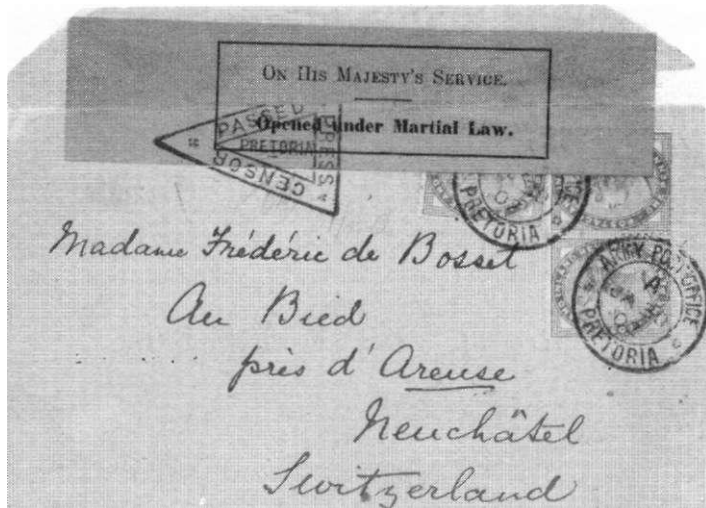 ON HIS MAJESTY'S SERVICE.
Opened under Martial Law.
PASSED
PRESS
CENSOR
PRETORIA
PRETORIA
ARMY POST OFFICE
PRETORIA
Madame Frédéric de Bosset
Au Bied
près d'Areuse
Neuchâtel
Switzerland